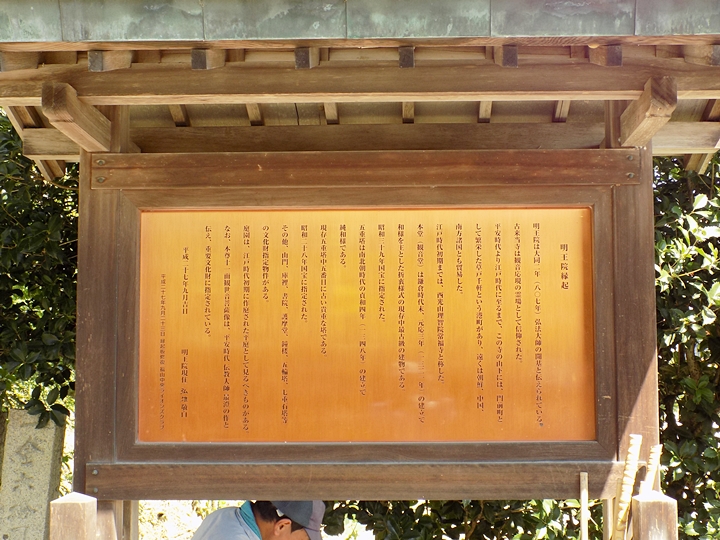 明王院縁起
明王院は大同二年（八〇七年）弘法大師の開基と伝えられている。
古来当寺は観音応現の霊場として信仰された。
平安時代より江戸時代に至るまで、この寺の山下には、門前町と
して繁栄した草戸千軒という港町があり、遠くは朝鮮、中国、
南方諸国とも貿易した。
江戸時代初期までは、西光山理智院常福寺と称した
本堂（観音堂）は鎌倉時代末、元応三年（一三二一年）の建立で
和様を主とした折衷様式の現存中最古級の建物である
昭和三十九年国宝に指定された。
五重塔は南北朝時代の貞和四年（一三四八年）の建立で
純和様である。
現存五重塔中五番目に古い貴重な塔である。
昭和二十八年国宝に指定された。
その他、山門、庫裡、書院、護摩堂、鐘楼、五輪塔、七重石塔等
の文化財指定物件がある。
庭園は、江戸時代初期に作庭された平庭として見るべきものがある
なお、本尊十一面観世音菩薩像は、平安時代、伝教大師の作と
伝え、重要文化財に指定されている。
平成二十七年九月吉日
明王院現住
平成二十七年九月二十三日